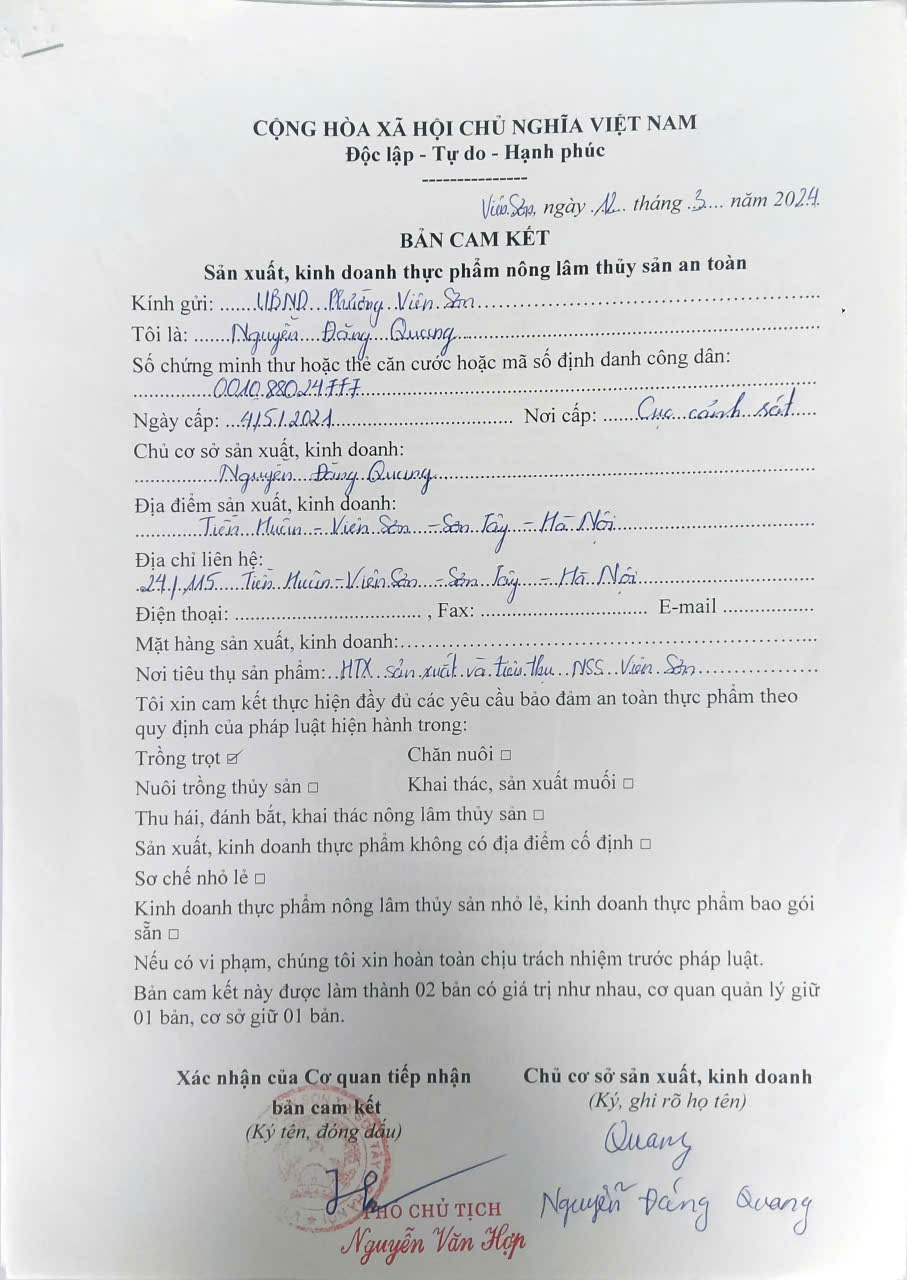 CỘNG HÒA XÃ HỘI CHỦ NGHĨA VIỆT NAM
Độc lập - Tự do - Hạnh phúc
---------------
Viên Sơn, ngày 12 tháng 3 năm 2024
BẢN CAM KẾT
Sản xuất, kinh doanh thực phẩm nông lâm thủy sản an toàn
Kính gửi: UBND Phường Viên Sơn
Tôi là: Nguyễn Đăng Quang
Số chứng minh thư hoặc thẻ căn cước hoặc mã số định danh công dân:
001088024777
Ngày cấp: 4/5/2021 Nơi cấp: Cục cảnh sát
Chủ cơ sở sản xuất, kinh doanh:
Nguyễn Đăng Quang
Địa điểm sản xuất, kinh doanh:
Tiền Huân - Viên Sơn - Sơn Tây - Hà Nội
Địa chỉ liên hệ:
24/115 Tiền Huân - Viên Sơn - Sơn Tây - Hà Nội
Điện thoại: , Fax: E-mail
Mặt hàng sản xuất, kinh doanh:
Nơi tiêu thụ sản phẩm: HTX sản xuất và tiêu thụ NSS Viên Sơn
Tôi xin cam kết thực hiện đầy đủ các yêu cầu bảo đảm an toàn thực phẩm theo
quy định của pháp luật hiện hành trong:
Trồng trọt ☑ Chăn nuôi □
Nuôi trồng thủy sản □ Khai thác, sản xuất muối □
Thu hái, đánh bắt, khai thác nông lâm thủy sản □
Sản xuất, kinh doanh thực phẩm không có địa điểm cố định □
Sơ chế nhỏ lẻ □
Kinh doanh thực phẩm nông lâm thủy sản nhỏ lẻ, kinh doanh thực phẩm bao gói
sẵn □
Nếu có vi phạm, chúng tôi xin hoàn toàn chịu trách nhiệm trước pháp luật.
Bản cam kết này được làm thành 02 bản có giá trị như nhau, cơ quan quản lý giữ
01 bản, cơ sở giữ 01 bản.
Xác nhận của Cơ quan tiếp nhận Chủ cơ sở sản xuất, kinh doanh
bản cam kết (Ký, ghi rõ họ tên)
(Ký tên, đóng dấu) Quang
PHÓ CHỦ TỊCH Nguyễn Đăng Quang
Nguyễn Văn Hợp